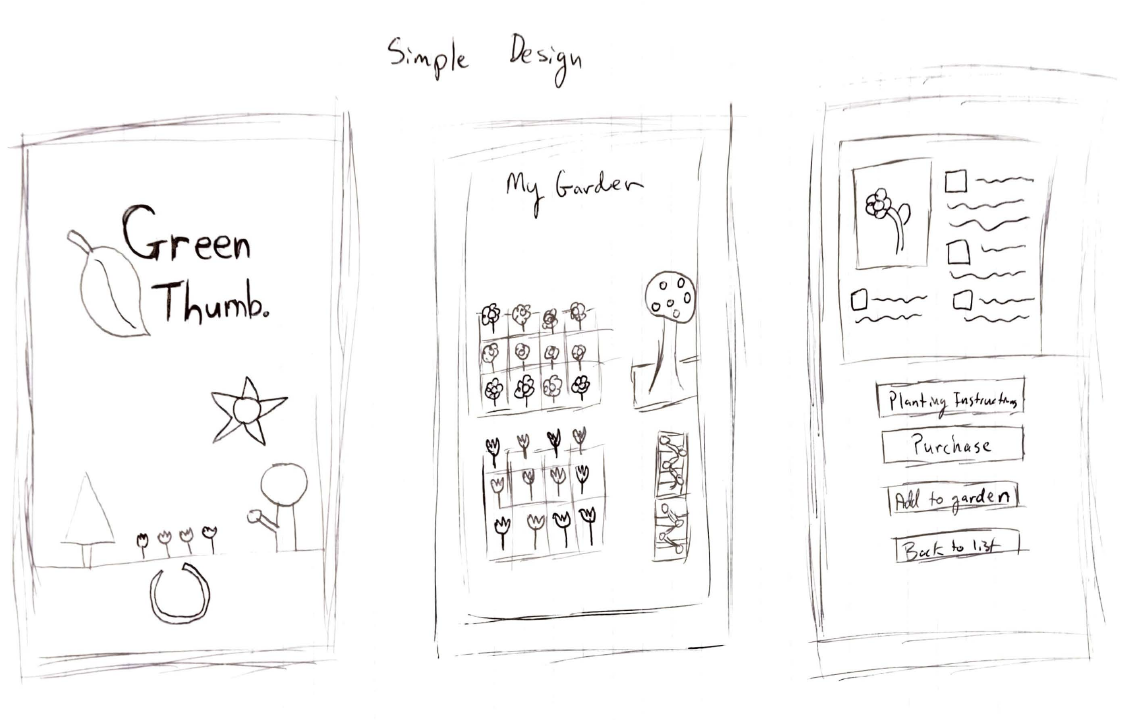 Simple Design
Green
Thumb.
My Garden
Planting Instructions
Purchase
Add to garden
Back to list